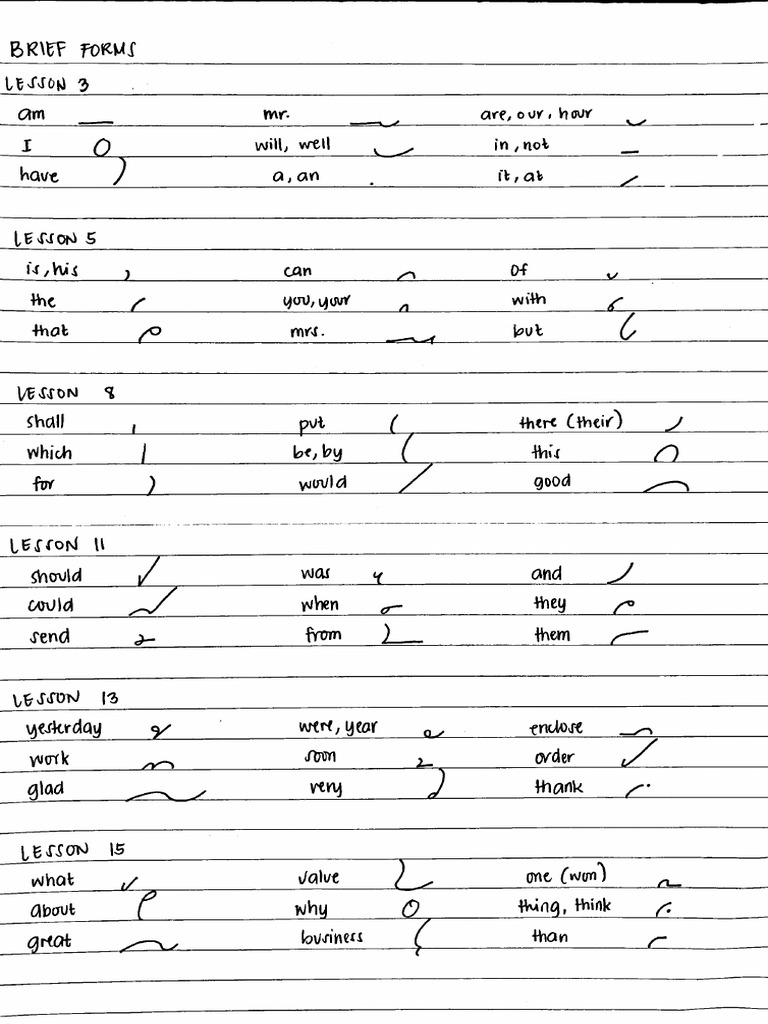 BRIEF FORMS
LESSON 3
am mr. are, our, hour
I will, well in, not
have a, an it, at
LESSON 5
is, his can of
the you, your with
that mrs. but
LESSON 8
shall put there (their)
which be, by this
for would good
LESSON 11
should was and
could when they
send from them
LESSON 13
yesterday were, year enclose
work soon order
glad very thank
LESSON 15
what value one (won)
about why thing, think
great business than